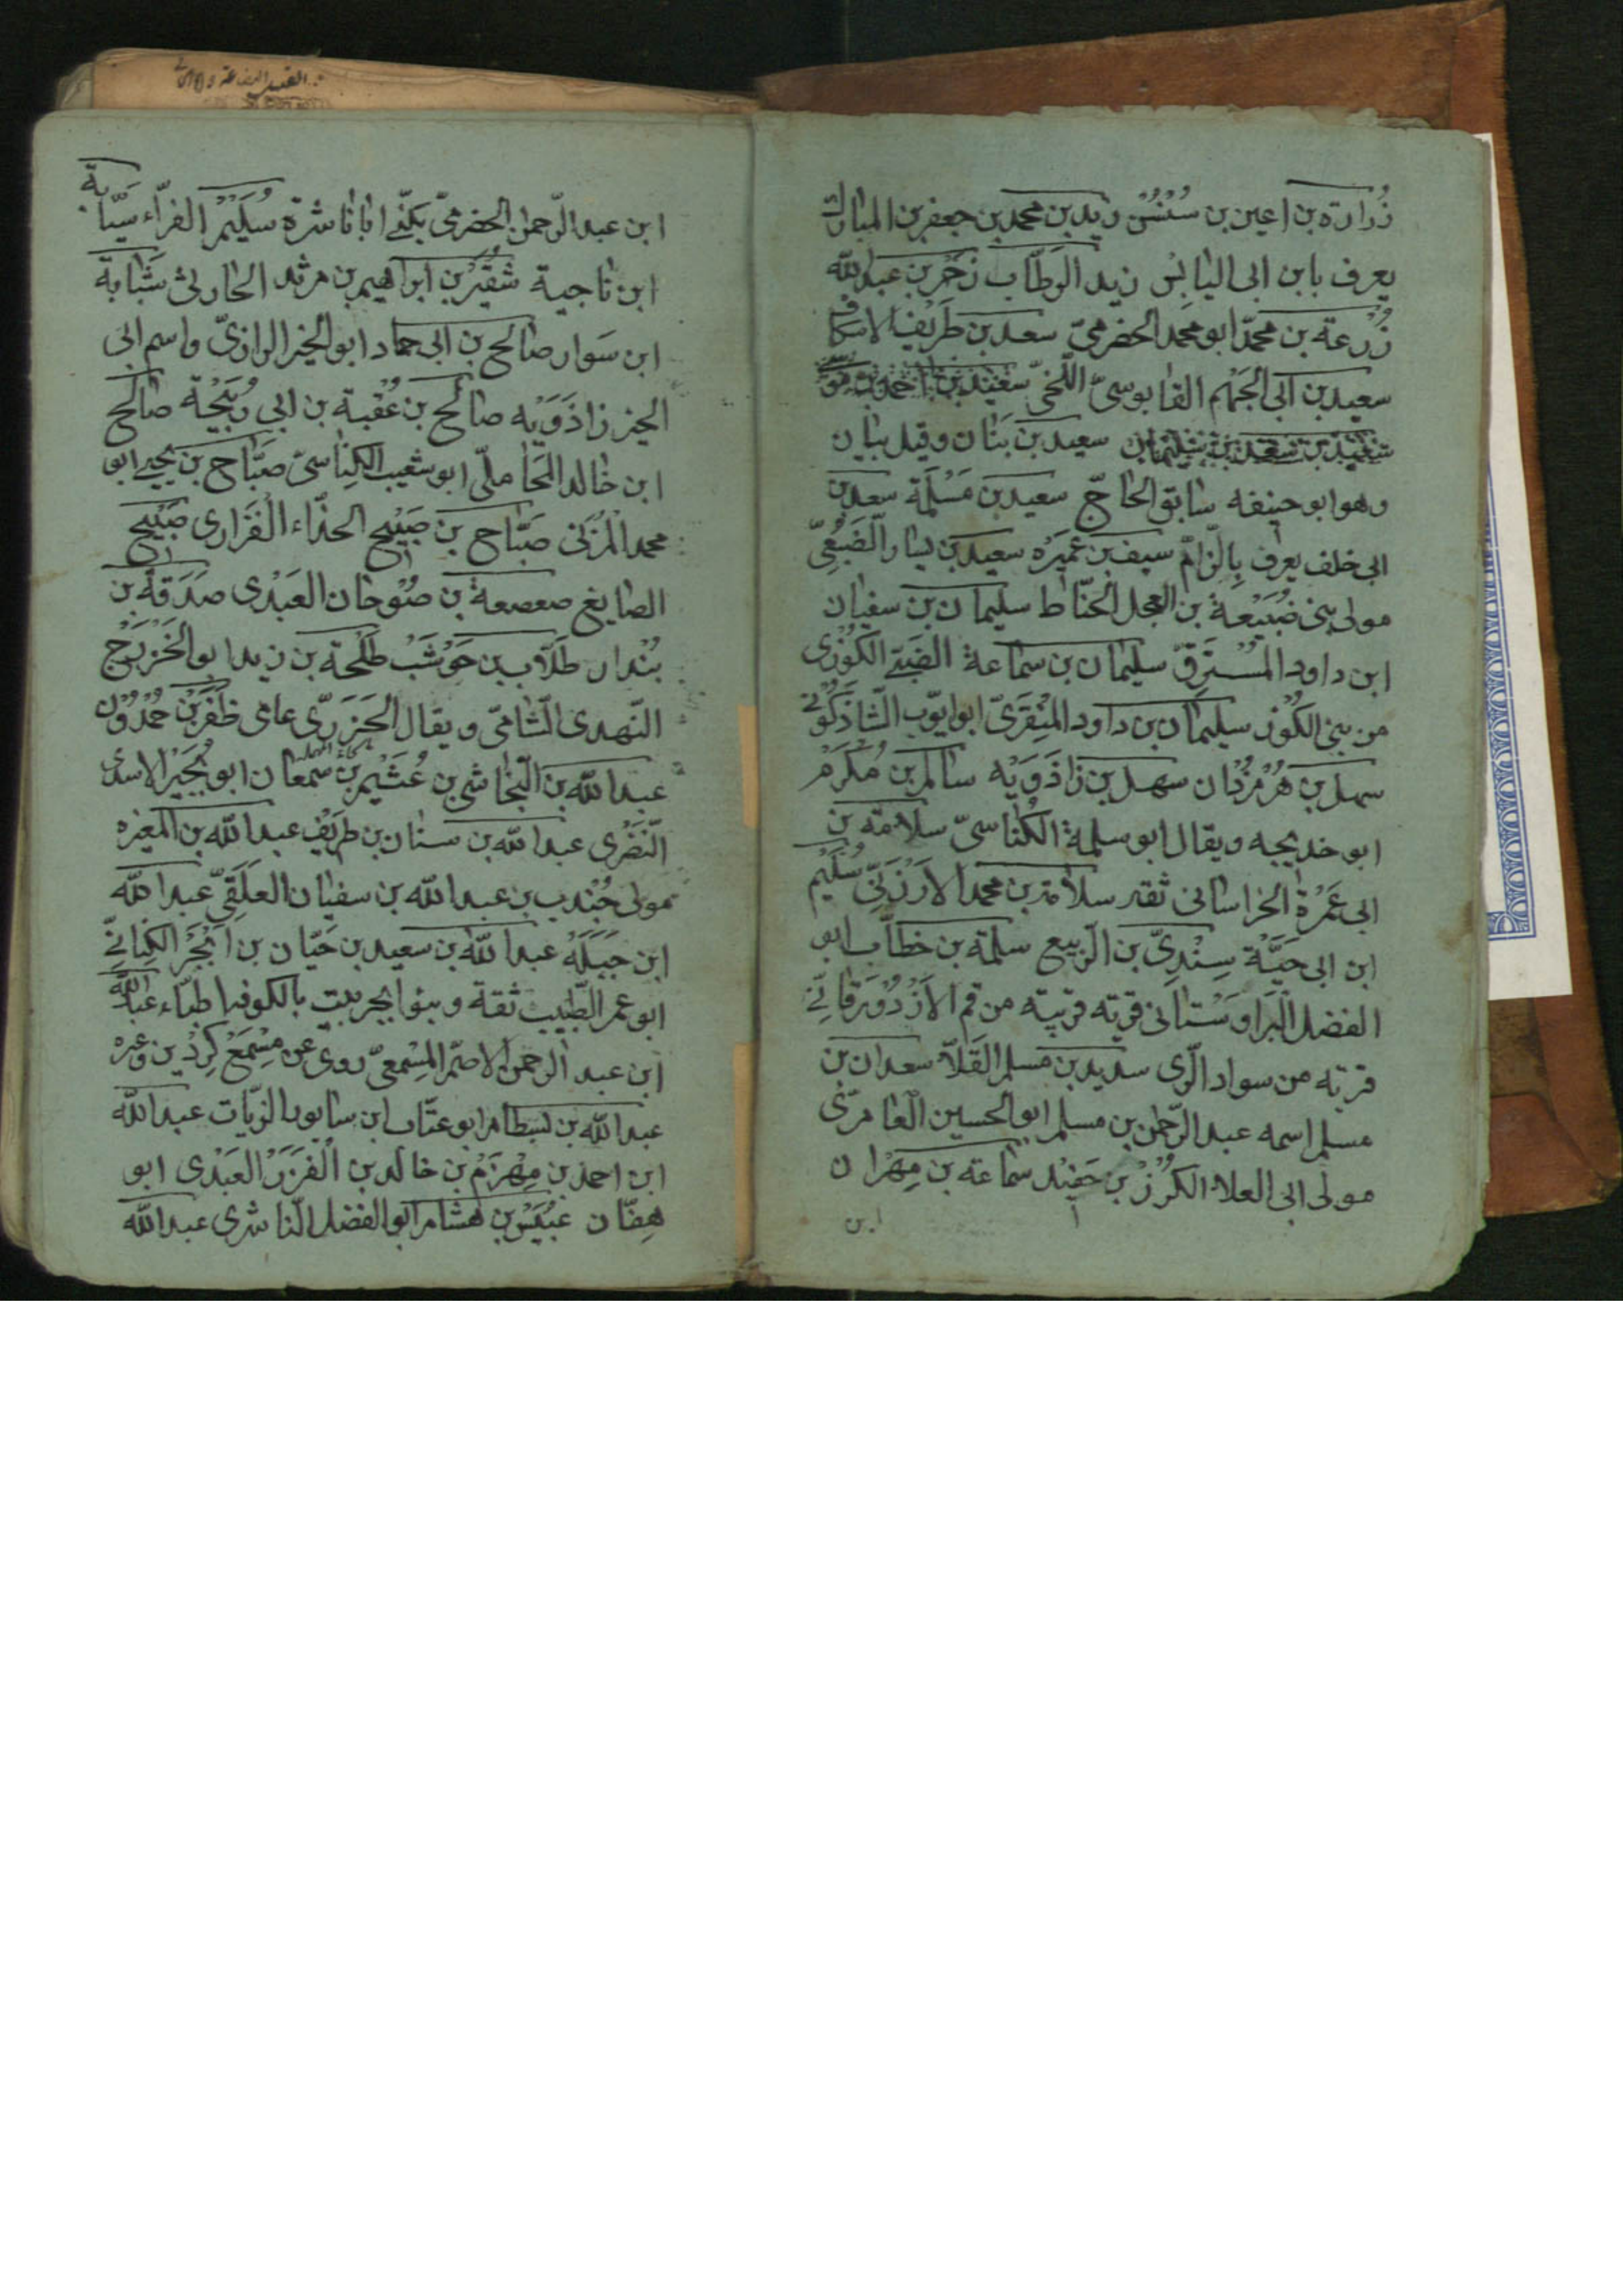 زُرارة بن اعين بن سُنْسُن زيد بن محمد بن جعفر بن المبارك
يعرف بابن ابى اليابِس زيد الوَطّاب زَحْر بن عبدالله
زُرْعة بن محمّد ابو محمد الحضرميّ سعد بن طَرِيف الاسكاف
سعيد بن ابى الجَهْم القابوسيّ اللّخميّ سعيد بن
سعيد بن بَنَان وقيل بيان
وهو ابو حنيفه سابق الحاجّ سعيد بن مَسْلَمة سعد بن
ابى خلف يعرف بِالزّامّ سيف بن عَمِيَره سعيد بن يسار الضّبَعيّ
مولى بنى ضُبَيْعة بن العِجل الحنّاط سليمان بن سفيان
ابن داود المُسْتَرِقّ سليمان بن سماعة الضبّى الكُوزى
من بنى الكُوز سليمان بن داود المِنْقَرىّ ابو ايّوب الشّاذَكُونى
سهل بن هُرْمُزْدان سهل بن زاذَوَيْه سالم بن مُكْرَم
ابو خديجه ويقال ابو سلمة الكُناسىّ سلامه بن
ابى عَمْرة الخراسانى ثقة سلامة بن محمد الارْزَنّى سُلَيْم
ابن ابى حَيَّة سِنْدِىّ بن الرّبيع سلمة بن خطاب ابو
الفضل البَراوِسْتانى قرته قريته من قم الازْدُورَقانّى
قرته من سواد الرّى سديد بن مسلم القَلّا سعدان بن
مسلم اسمه عبد الرّحمن بن مسلم ابو الحسين العامرىّ
مولى ابى العلا الكُرْز بن حَفِيْد سماعة بن مِهْران
ابن
ابن عبد الرّحمن الحضرمىّ يكنّى ابا ناشرة سُلَيْم الفرّاء سيّابة
ابن ناجية شُقَيْر بن ابراهيم بن مرثد الحارثى شَبّابة
ابن سَوار صالح بن ابى حماد ابو الخير الرازىّ واسم ابى
الخير زاذَوَيْه صالح بن عُقْبة بن ابى رُبَيْحة صالح
ابن خالد المَحامليّ ابو شعيب الكِناسىّ صَبّاح بن يحيى ابو
محمد المُزَنى صَبّاح بن صَبِيْح الحذّاء الفَزارى صَبِيْح
الصايغ صعصعة بن صُوْحان العَبْدى صَدَقة بن
بُنْدار طَلّاب بن حَوْشَب طَلْحة بن زيد ابو الخَزْرَج
النّهدى الشّامىّ ويقال الخَزَرىّ عامى ظَفَر بن حُمْدون
عبد الله بن النّجاشى بن عُثَيْم بن سمعان ابو بُجَيْر الاسدى
النّصْرى عبد الله بن سنان بن طَرِيْف عبد الله بن المغيره
مولى جُنْدب بن عبد الله بن سفيان العلَقىّ عبد الله
ابن جَبَلَه عبد الله بن سعيد بن حَيّان بن اَبْجَر الكِنانىّ
ابو عمر الطّبيب ثقة وبنو ابجر بيت بالكوفه اطبّاء عبد الله
ابن عبد الرحمن الاصمّ المِسْمعىّ روى عن مِسْمَع كِرْدِين وغيره
عبد الله بن بسطام ابو عتّاب ابن سابور الزيّات عبد الله
ابن احمد بن مِهْزَم بن خالد بن الفَزَر العَبْدى ابو
هِفّان عُبَيْس بن هشام ابو الفضل النّاشرى عبد الله